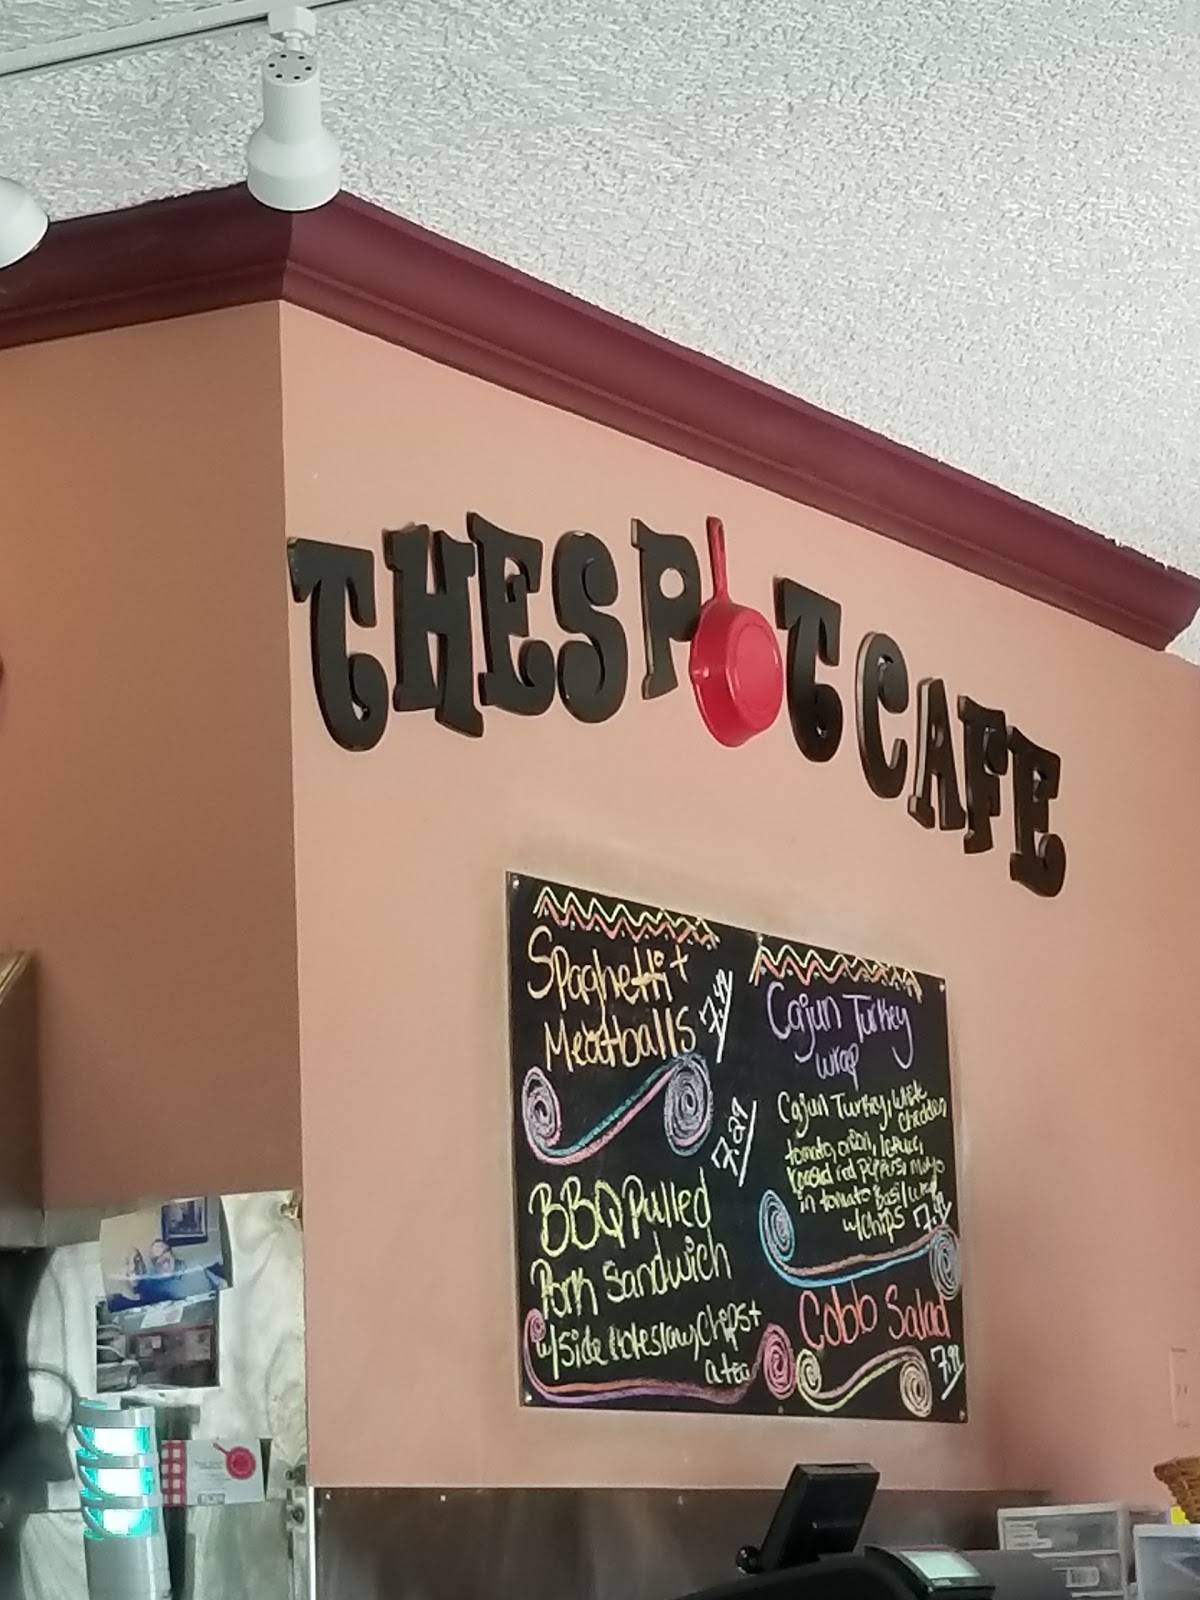 THE SPOT CAFE
Spaghetti +
Meatballs 7.49
7.29
BBQ Pulled
Pork Sandwich
w/side Coleslaw, Chips +
a tea
Cajun Turkey
Wrap
Cajun Turkey, white
cheddar
tomato, onion, lettuce,
roasted red peppers, mayo
in tomato Basil wrap
w/chips 7.49
Cobb Salad
7.99